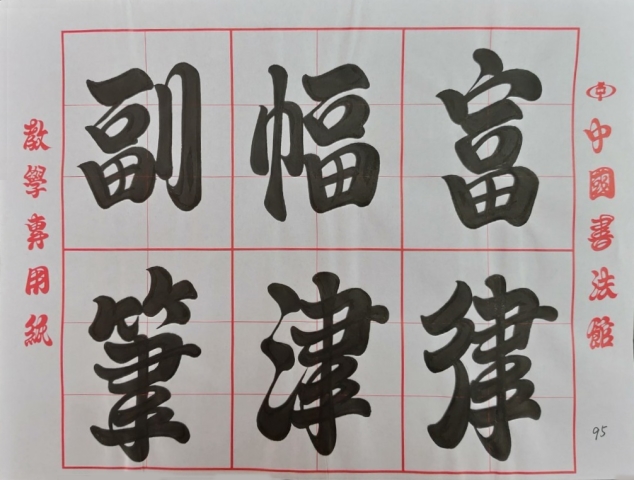 中國書法館
富幅副
律津筆
教學專用紙
95